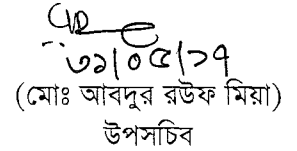 ৩১/০৫/১৭
(মোঃ আবদুর রউফ মিয়া)
উপসচিব